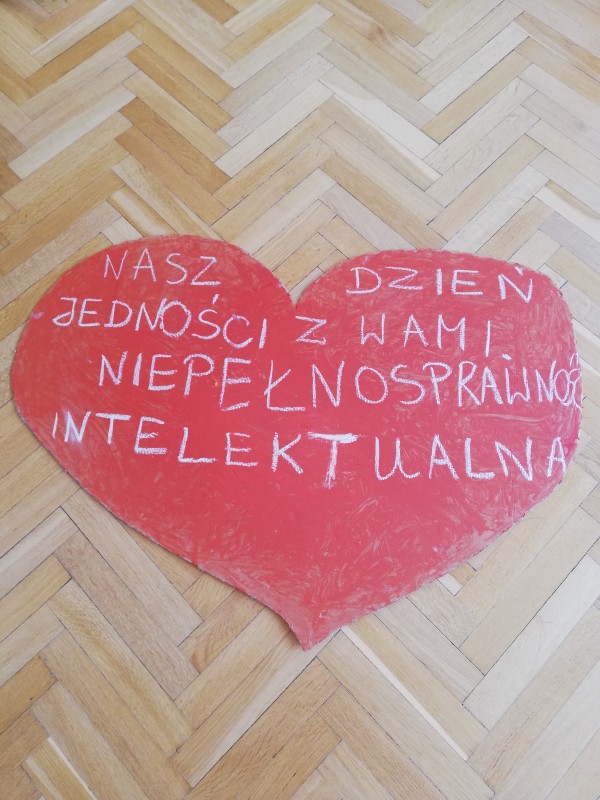 NASZ DZIEŃ
JEDNOŚCI Z WAMI
NIEPEŁNOSPRAWNOŚ
INTELEKTUALNA